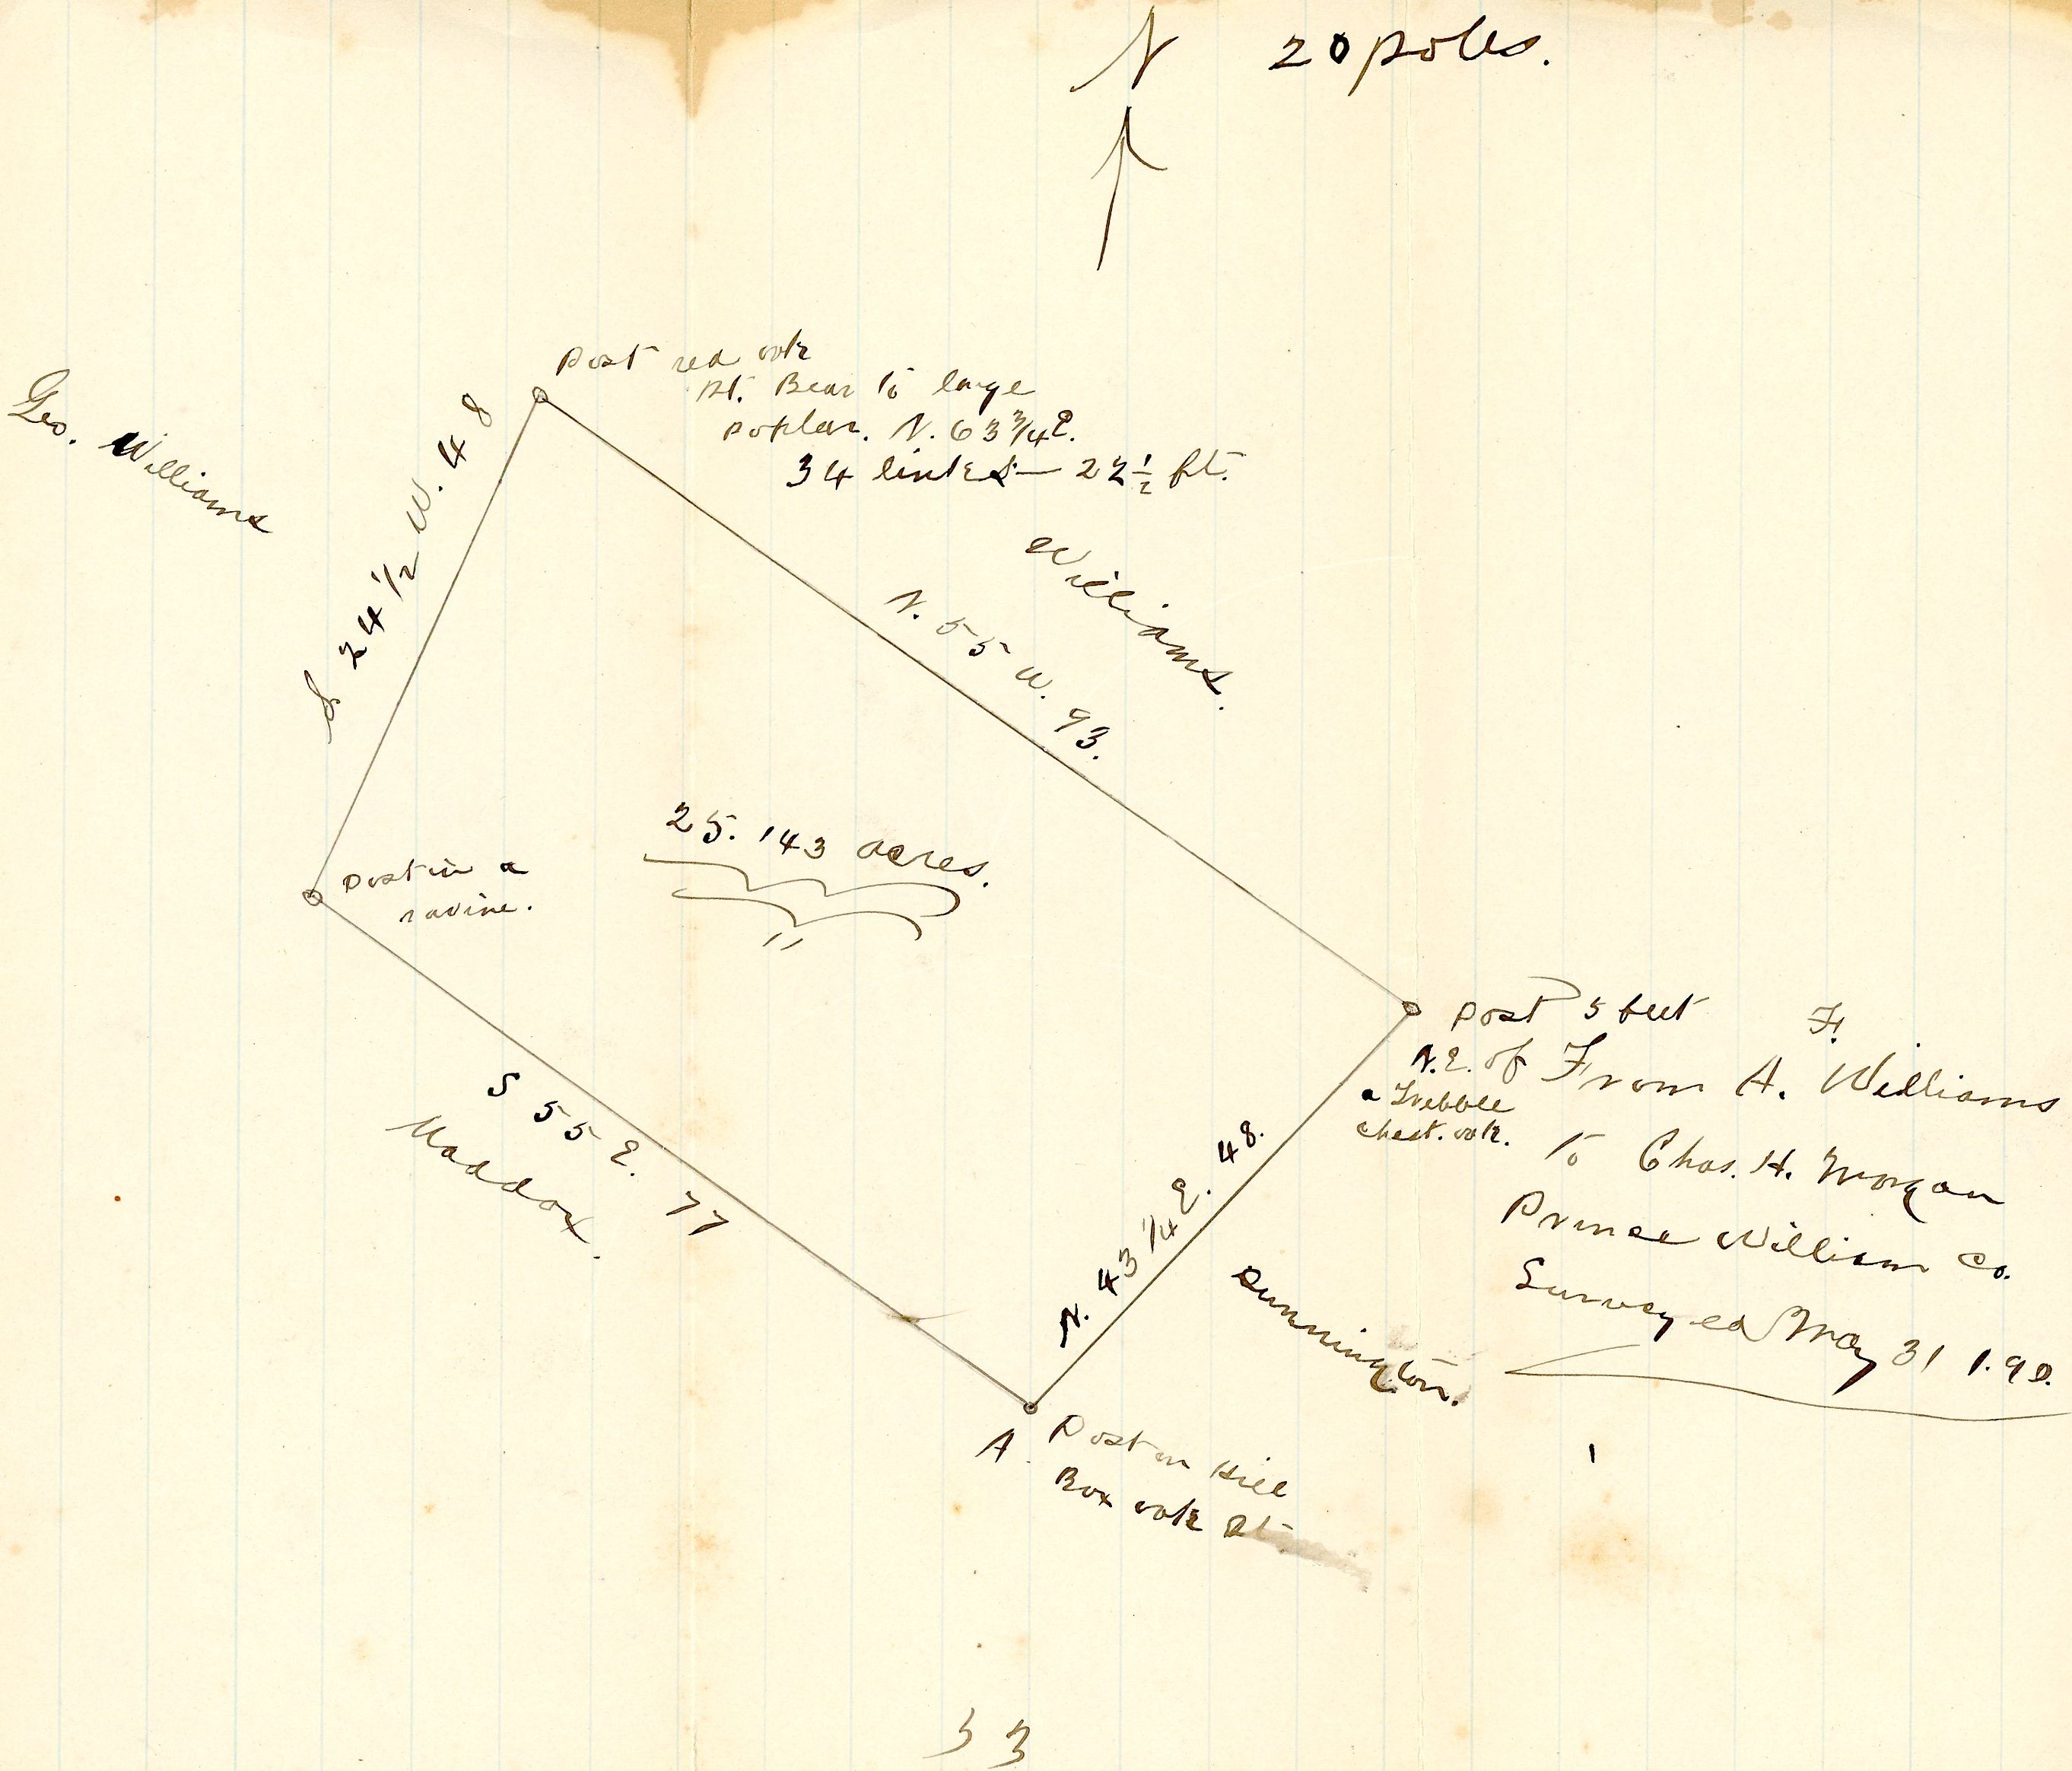 N 20 poles.
Post red oak
Pt. Bear to large
poplar. N. 63 3/4 E.
34 links — 22 1/2 ft.
Geo. Williams
S 24 1/2 W. 48
Williams.
N. 55 W. 93.
25.143 acres.
Post in a
ravine.
Post 5 feet
N.E. of
a Trebble
chest. oak.
F.
From A. Williams
to Chas. H. Morgan
Prince William Co.
Surveyed May 31
S 55 E. 77
Maddox.
N. 43 1/4 E. 48.
Dunnington.
A.
Post on Hill
Box oak Pt
33